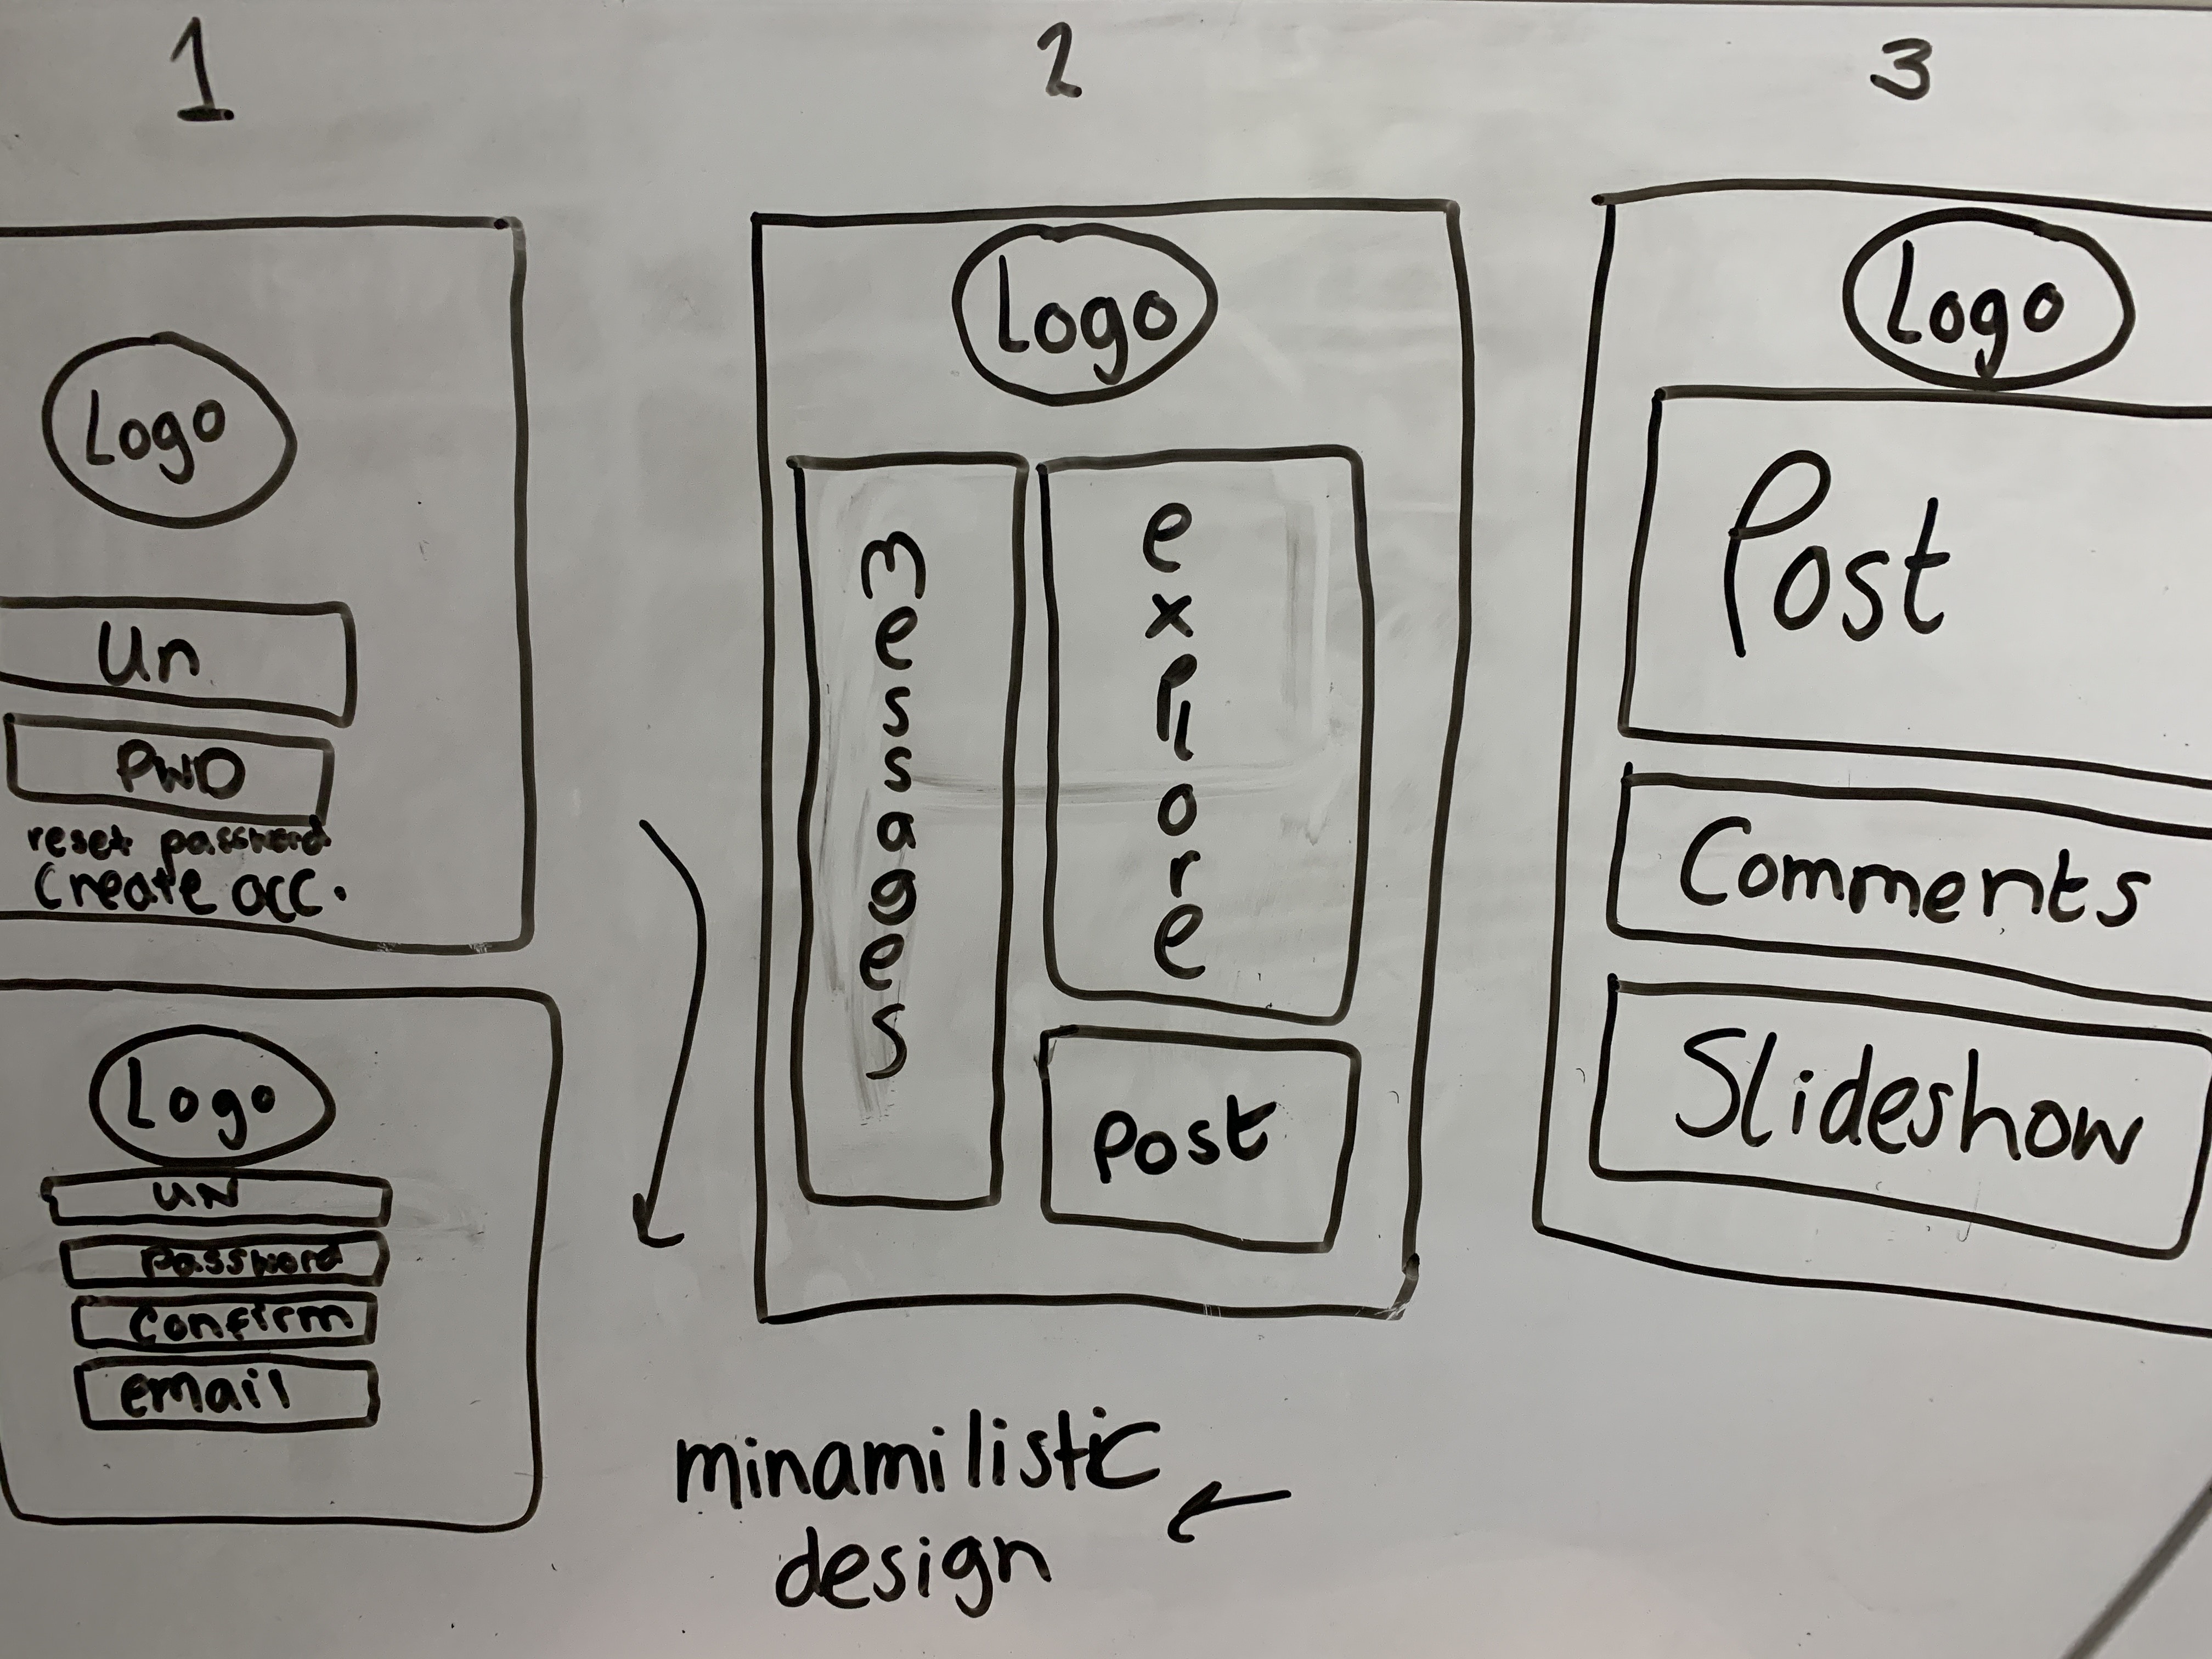 1
2
3
Logo
Un
PWD
reset password
Create acc.
Logo
UN
Password
Confirm
email
Logo
messages
explore
Post
minamilistic
design
Logo
Post
Comments
Slideshow